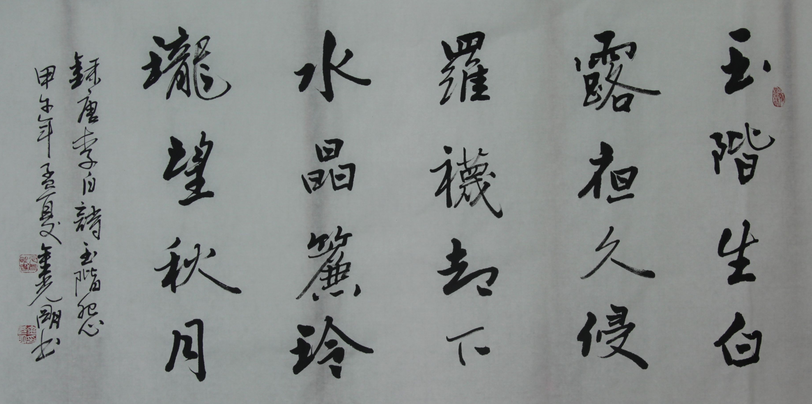 玉階生白
露亱久侵
羅襪却下
水晶簾玲
瓏望秋月
錄唐李白詩玉階怨
甲午年孟夏金光書